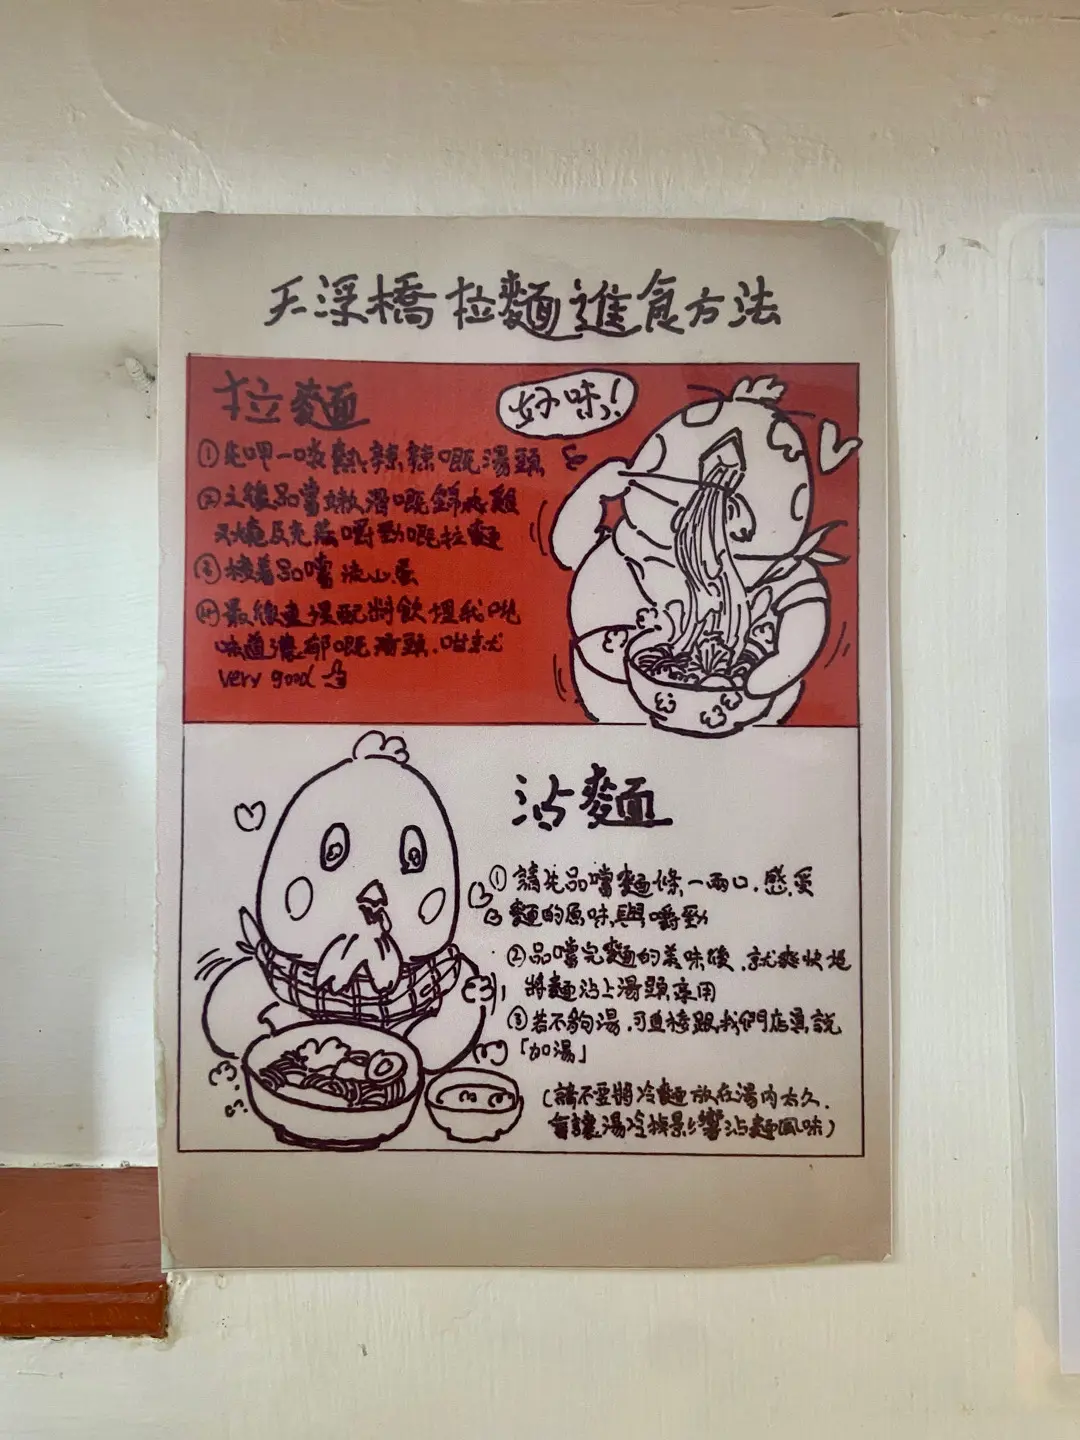 天深橋拉麵進食方法
拉麵
好味!
①先呷一啖熱辣辣嘅湯頭
②之後品嚐嫩滑嘅錦水雞
叉燒及充滿嚼勁嘅拉麵
③接着品嚐流心蛋
④最後連埋配料飲埋我哋
味道濃郁嘅湯頭.咁就
very good
沾麵
①請先品嚐麵條一兩口.感受
麵的原味與嚼勁
②品嚐完麵的美味後.就爽快地
將麵沾上湯頭享用
③若不夠湯.可直接跟我們店員說
「加湯」
(請不要將冷麵放在湯內太久.
會讓湯冷掉影響沾麵風味)